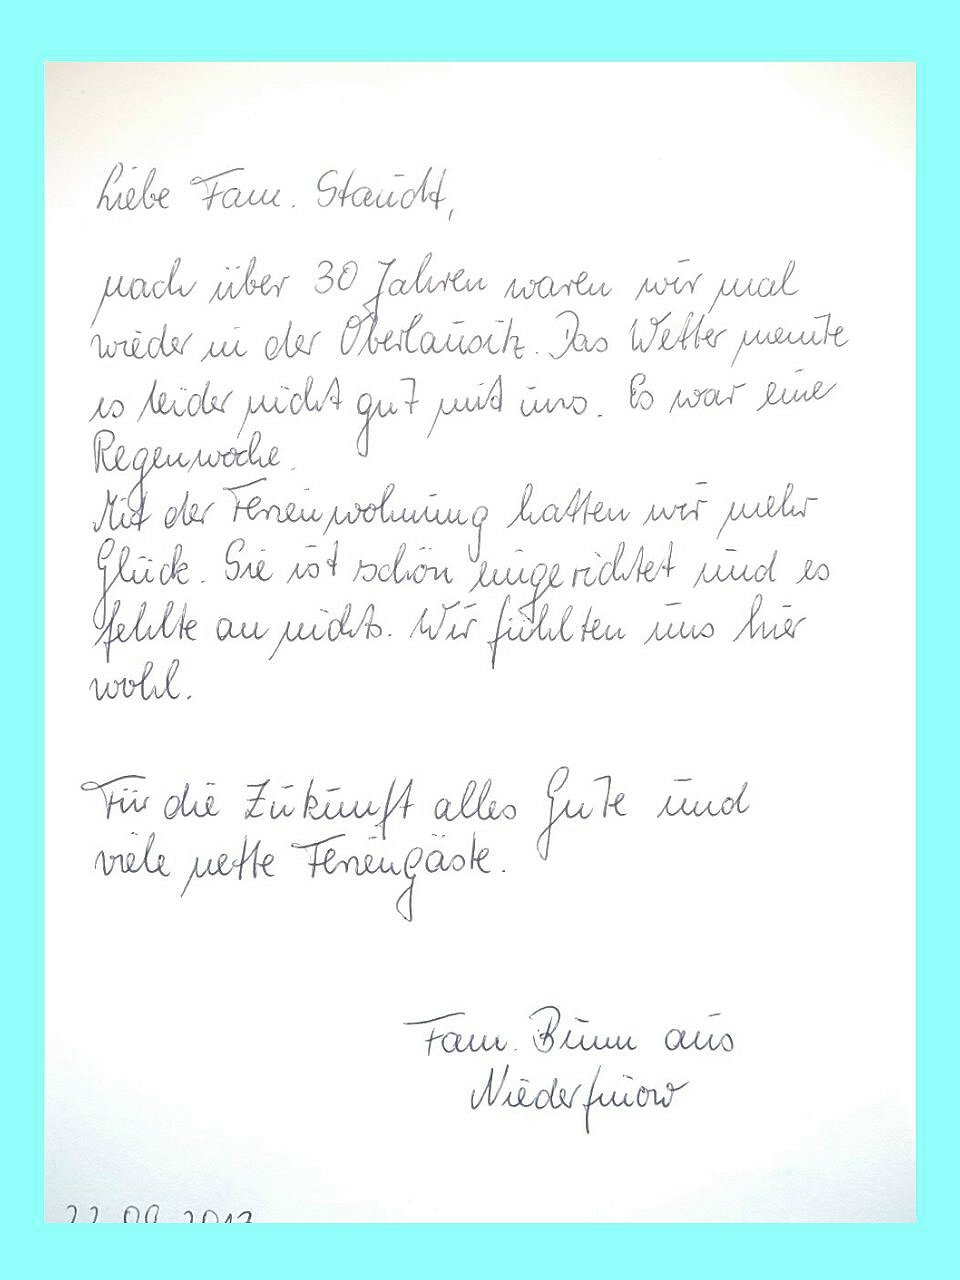 Liebe Fam. Staudt,
nach über 30 Jahren waren wir mal
wieder in der Oberlausitz. Das Wetter meinte
es leider nicht gut mit uns. Es war eine
Regenwoche.
Mit der Ferienwohnung hatten wir mehr
Glück. Sie ist schön eingerichtet und es
fehlte an nichts. Wir fühlten uns hier
wohl.
Für die Zukunft alles Gute und
viele nette Feriengäste.
Fam. aus
Niederfinow
22.09.2013